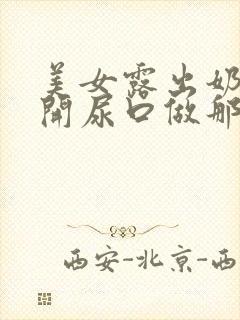 美女露出奶
開尿口做那
西安-北京-西